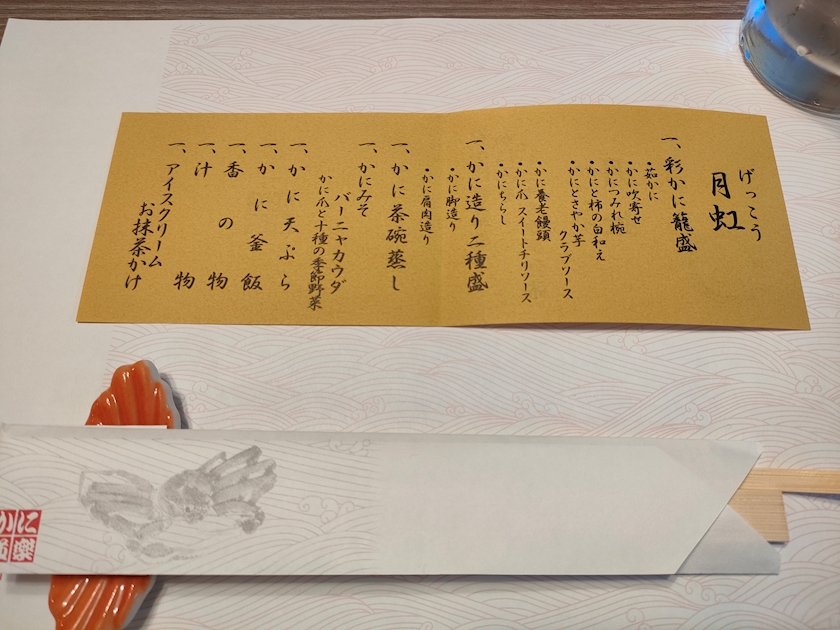 げっこう
月虹
一、彩かに籠盛
・茹かに
・かに吹寄せ
・かにつみれ椀
・かにと柿の白和え
・かにとさやか芋
クラブソース
・かに養老饅頭
・かに爪 スイートチリソース
・かにちらし
一、かに造り二種盛
・かに脚造り
・かに肩肉造り
一、かに茶碗蒸し
一、かにみそ
バーニャカウダ
かに爪と十種の季節野菜
一、かに天ぷら
一、かに釜飯
一、香の物
一、汁物
一、アイスクリーム
お抹茶かけ
かに
道楽